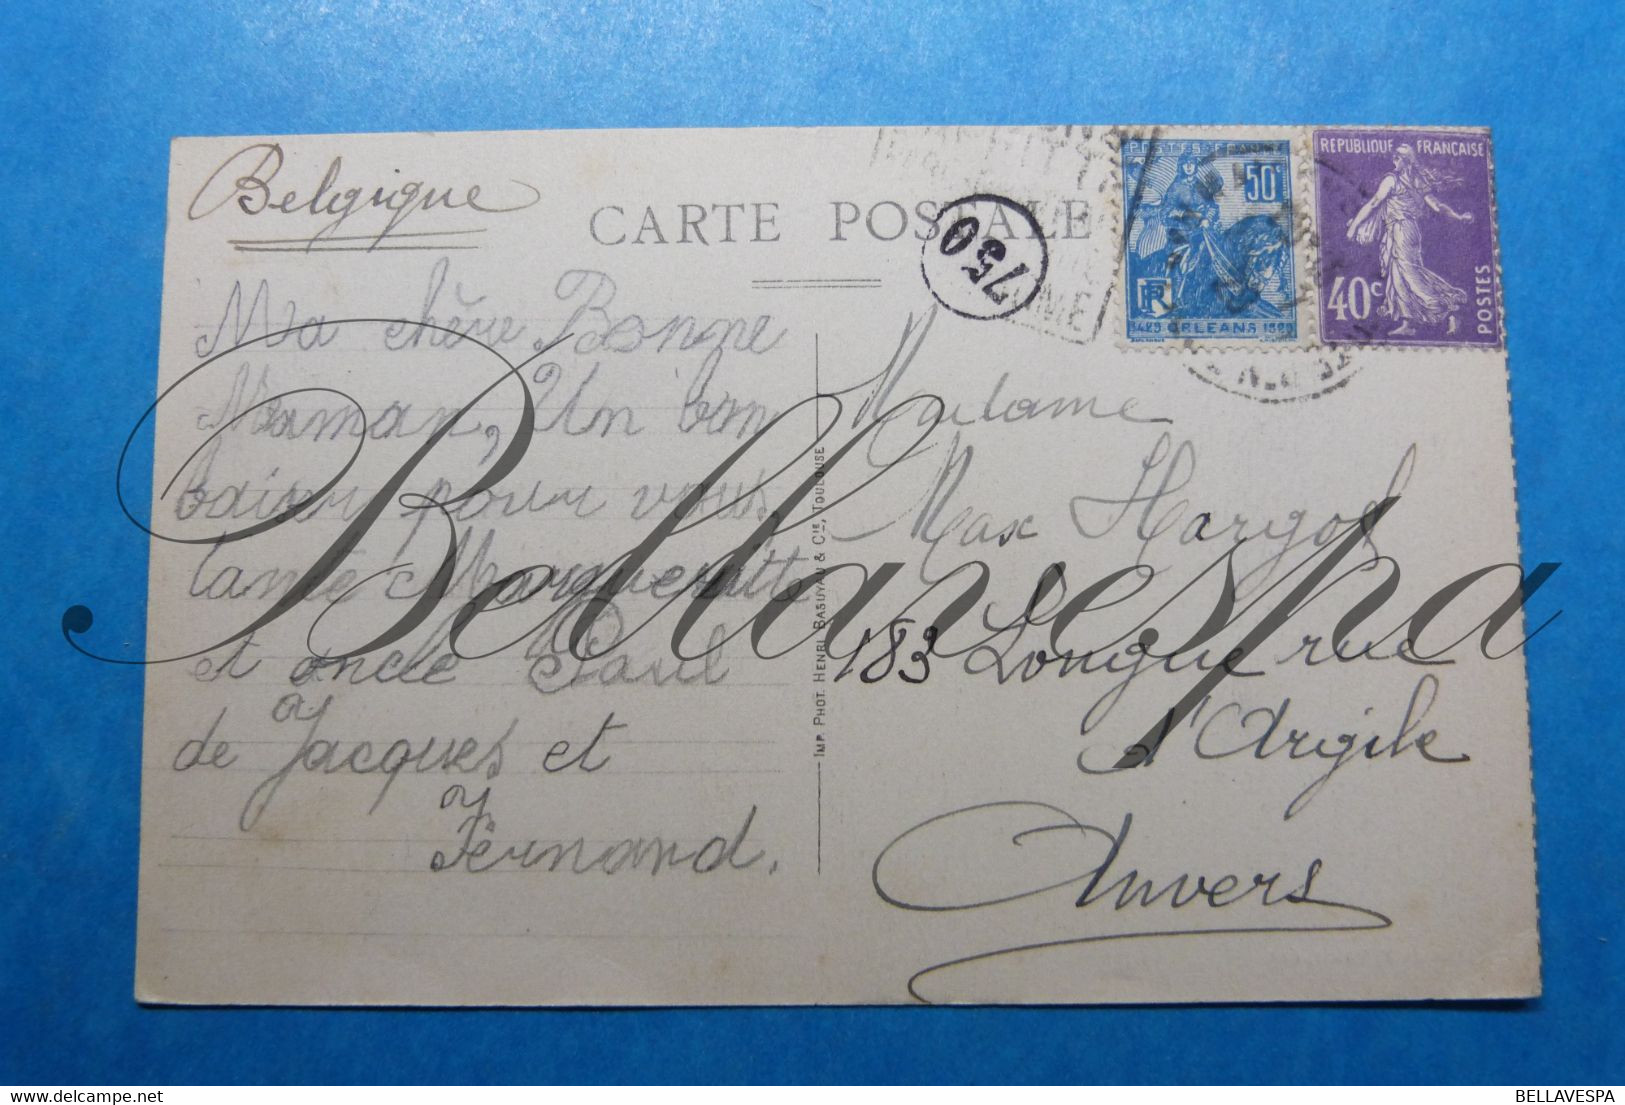 Belgique
CARTE POSTALE
750
POSTES FRANCE
50c
RF
1429 ORLEANS 1929
REPUBLIQUE FRANÇAISE
40c
POSTES
Ma chère Bonne
Maman, Un bon
baiser pour vous,
tante Marguerite
et oncle Paul
de Jacques et
Fernand.
IMP. PHOT. HENRI BASUYAU & CIE, TOULOUSE
Madame
Max Hargot
183 Longue rue
d'Argile
Anvers
Bellavespa
BELLAVESPA